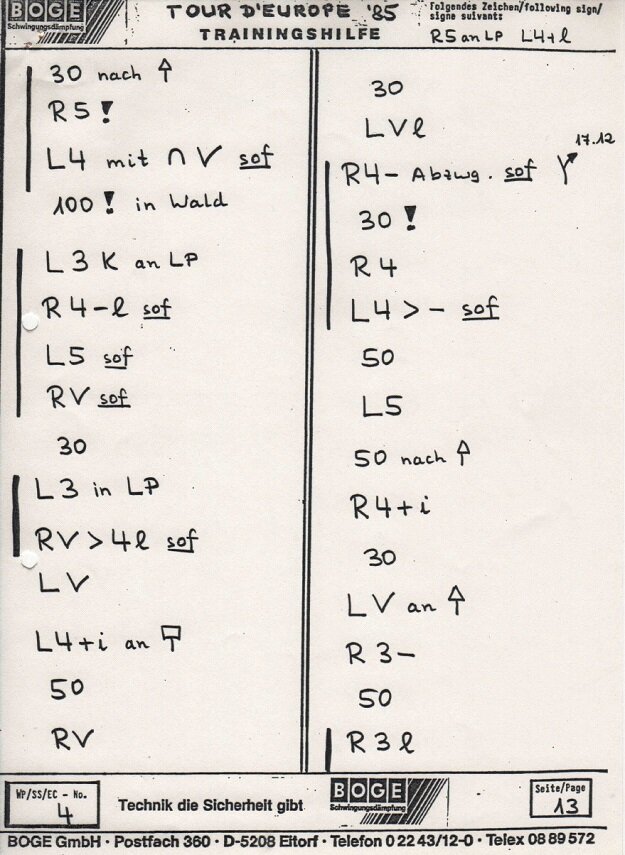 BOGE
Schwingungsdämpfung
TOUR D'EUROPE '85
TRAININGSHILFE
Folgendes Zeichen/following sign/
signe suivant:
R5 an LP L4+l
30 nach ↑
R5!
L4 mit ∩ V sof
100 ! in Wald
L3 K an LP
R4-l sof
L5 sof
RV sof
30
L3 in LP
RV>4l sof
LV
L4+i an
50
RV
30
LVl
17.12
R4- Abzwg. sof
30 !
R4
L4>- sof
50
L5
50 nach ↑
R4+i
30
LV an ↑
R3-
50
R3l
WP/SS/EC - No.
4
Technik die Sicherheit gibt
BOGE
Schwingungsdämpfung
Seite/Page
13
BOGE GmbH · Postfach 360 · D-5208 Eitorf · Telefon 0 22 43/12-0 · Telex 08 89 572